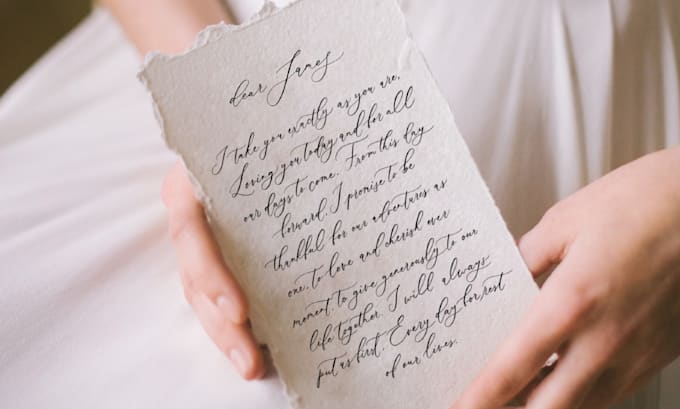 dear James
I take you exactly as you are.
Loving you today and for all
our days to come. From this day
forward, I promise to be
thankful for our adventures as
one, to love and cherish ever
moment, to give generously to our
life together. I will always
put us first. Every day for rest
of our lives.